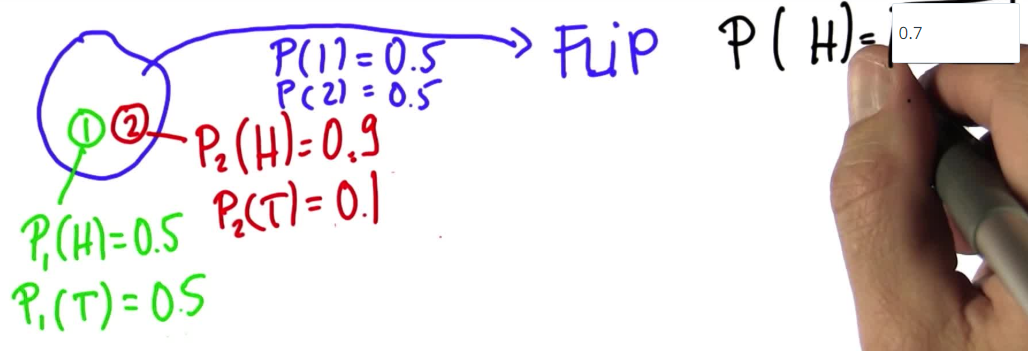 P(1) = 0.5
P(2) = 0.5
FLIP
P(H)=
0.7
1
2
P₂(H)=0.9
P₂(T)=0.1
P₁(H)=0.5
P₁(T)=0.5